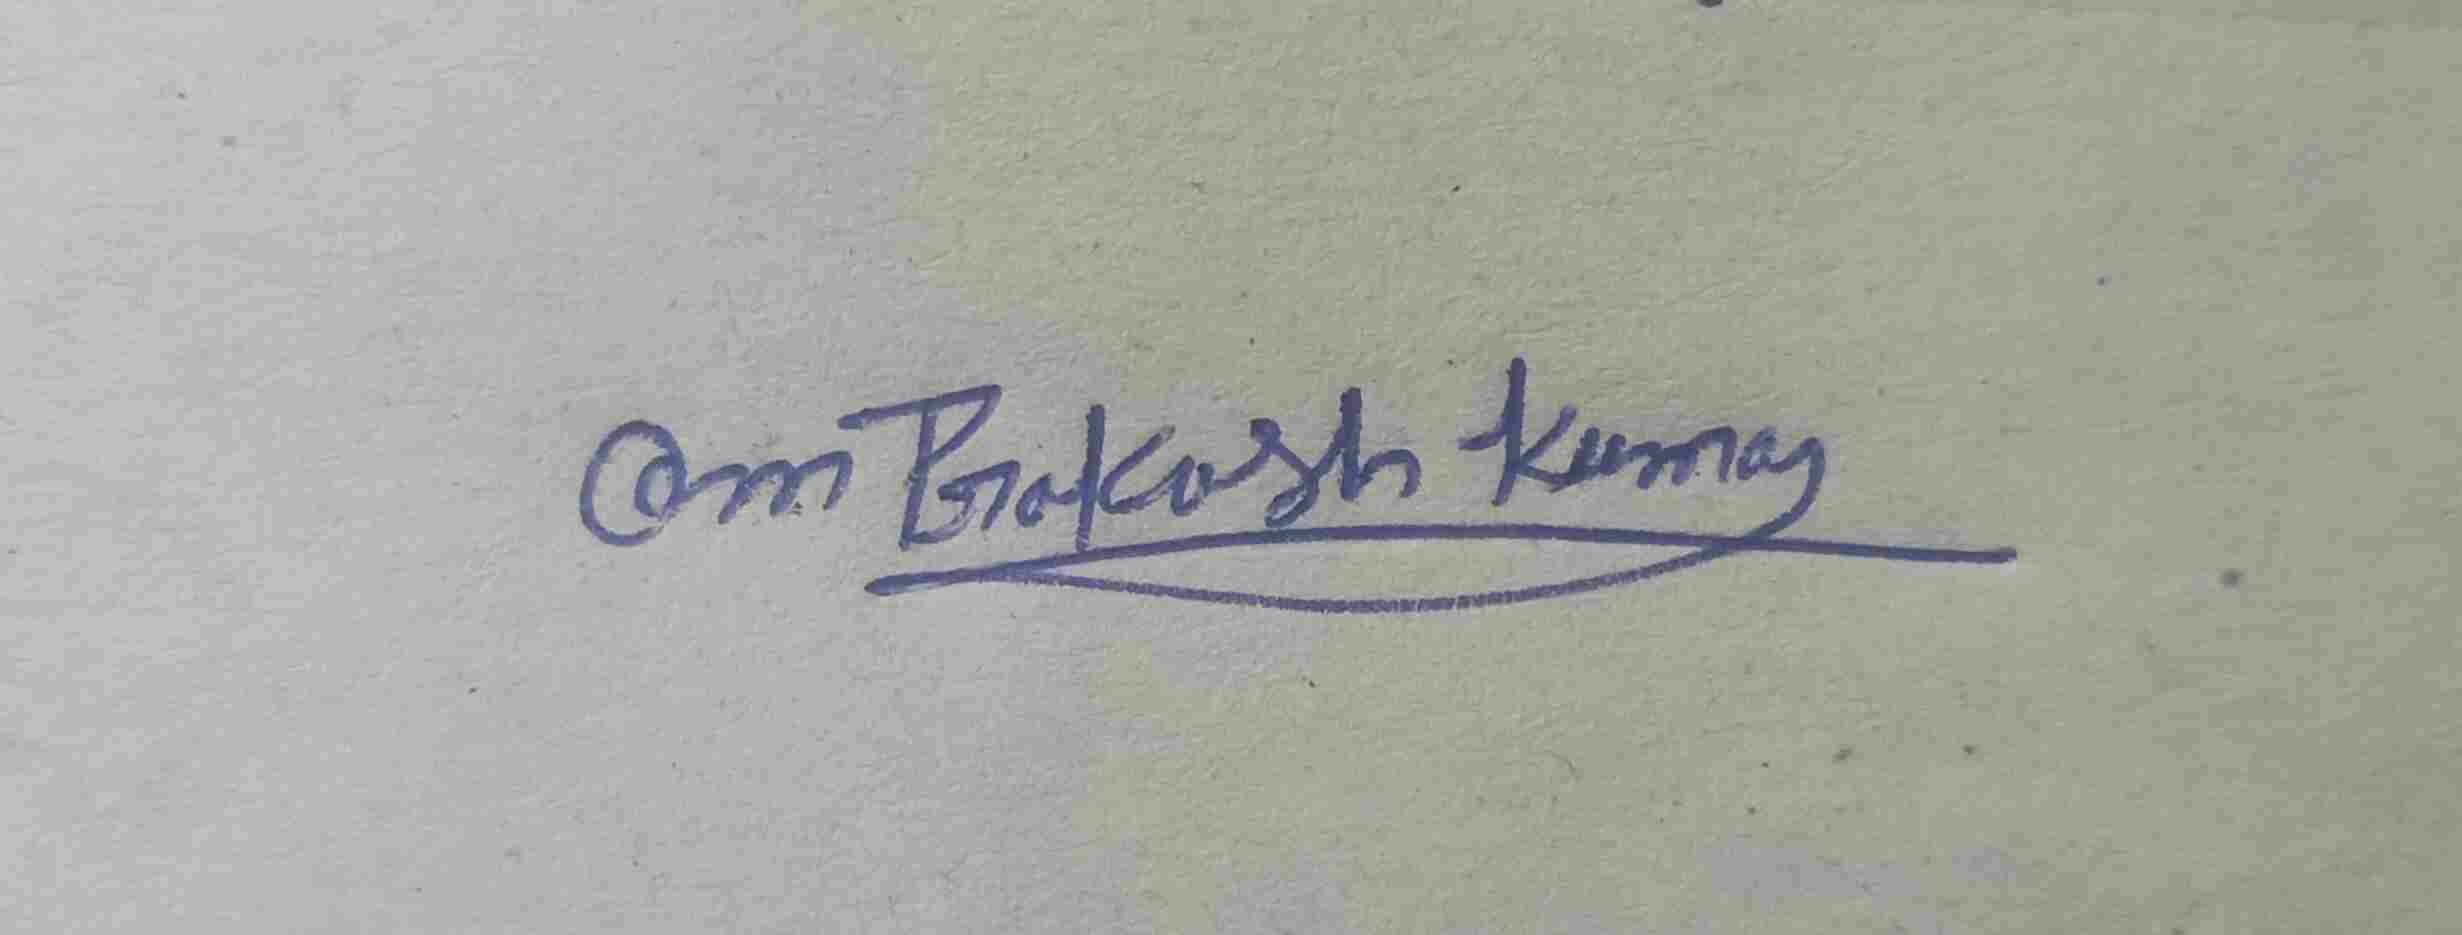 Om Prakash Kumar